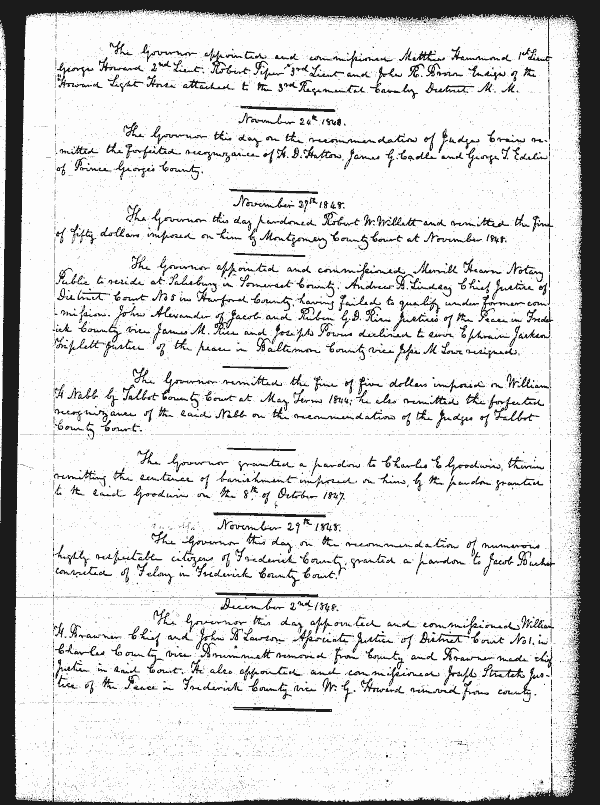 The Governor appointed and commissioned Matthew Hammond 1st Lieut
George Howard 2nd Lieut. Robert Piper 3rd Lieut and John R. Brown Ensign of the
Howard Light Horse attached to the 3rd Regimental Cavalry District M. M.
November 24th 1848.
The Governor this day on the recommendation of Judge Crain re-
mitted the forfeited recognizance of H. D. Hatton, James G. Cadle and George T. Edelin
of Prince George's County.
November 27th 1848.
The Governor this day pardoned Robert W. Willett and remitted the fine
of fifty dollars imposed on him by Montgomery County Court at November 1848.
The Governor appointed and commissioned Merrill Hearn Notary
Public to reside at Salisbury in Somerset County. Andrew D. Lindsay Chief Justice of
District Court No 5 in Harford County, having failed to qualify under former com-
mission. John Alexander of Jacob and Rubin G. D. Rice Justices of the Peace in Frede-
rick County vice James M. Rice and Joseph declined to serve Ephraim Jackson
Triplett Justice of the peace in Baltimore County vice M. Love resigned.
The Governor remitted the fine of five dollars imposed on William
H. Nabb by Talbot County Court at May Term 1844; he also remitted the forfeited
recognizance of the said Nabb on the recommendation of the Judges of Talbot
County Court.
The Governor granted a pardon to Charles E. Goodwin, therein
remitting the sentence of banishment imposed on him, by the pardon granted
to the said Goodwin on the 8th of October 1847.
November 29th 1848.
The Governor this day on the recommendation of numerous
highly respectable citizens of Frederick County, granted a pardon to Jacob
convicted of Felony in Frederick County Court.
December 2nd 1848.
The Governor this day appointed and commissioned William
H. Brawner Chief and John B. Lawson Associate Justice of District Court No 1. in
Charles County vice Brummett removed from County and Brawner made chief
Justice in said Court. He also appointed and commissioned Joseph Stretch Jus-
tice of the Peace in Frederick County vice W. G. Howard removed from county.